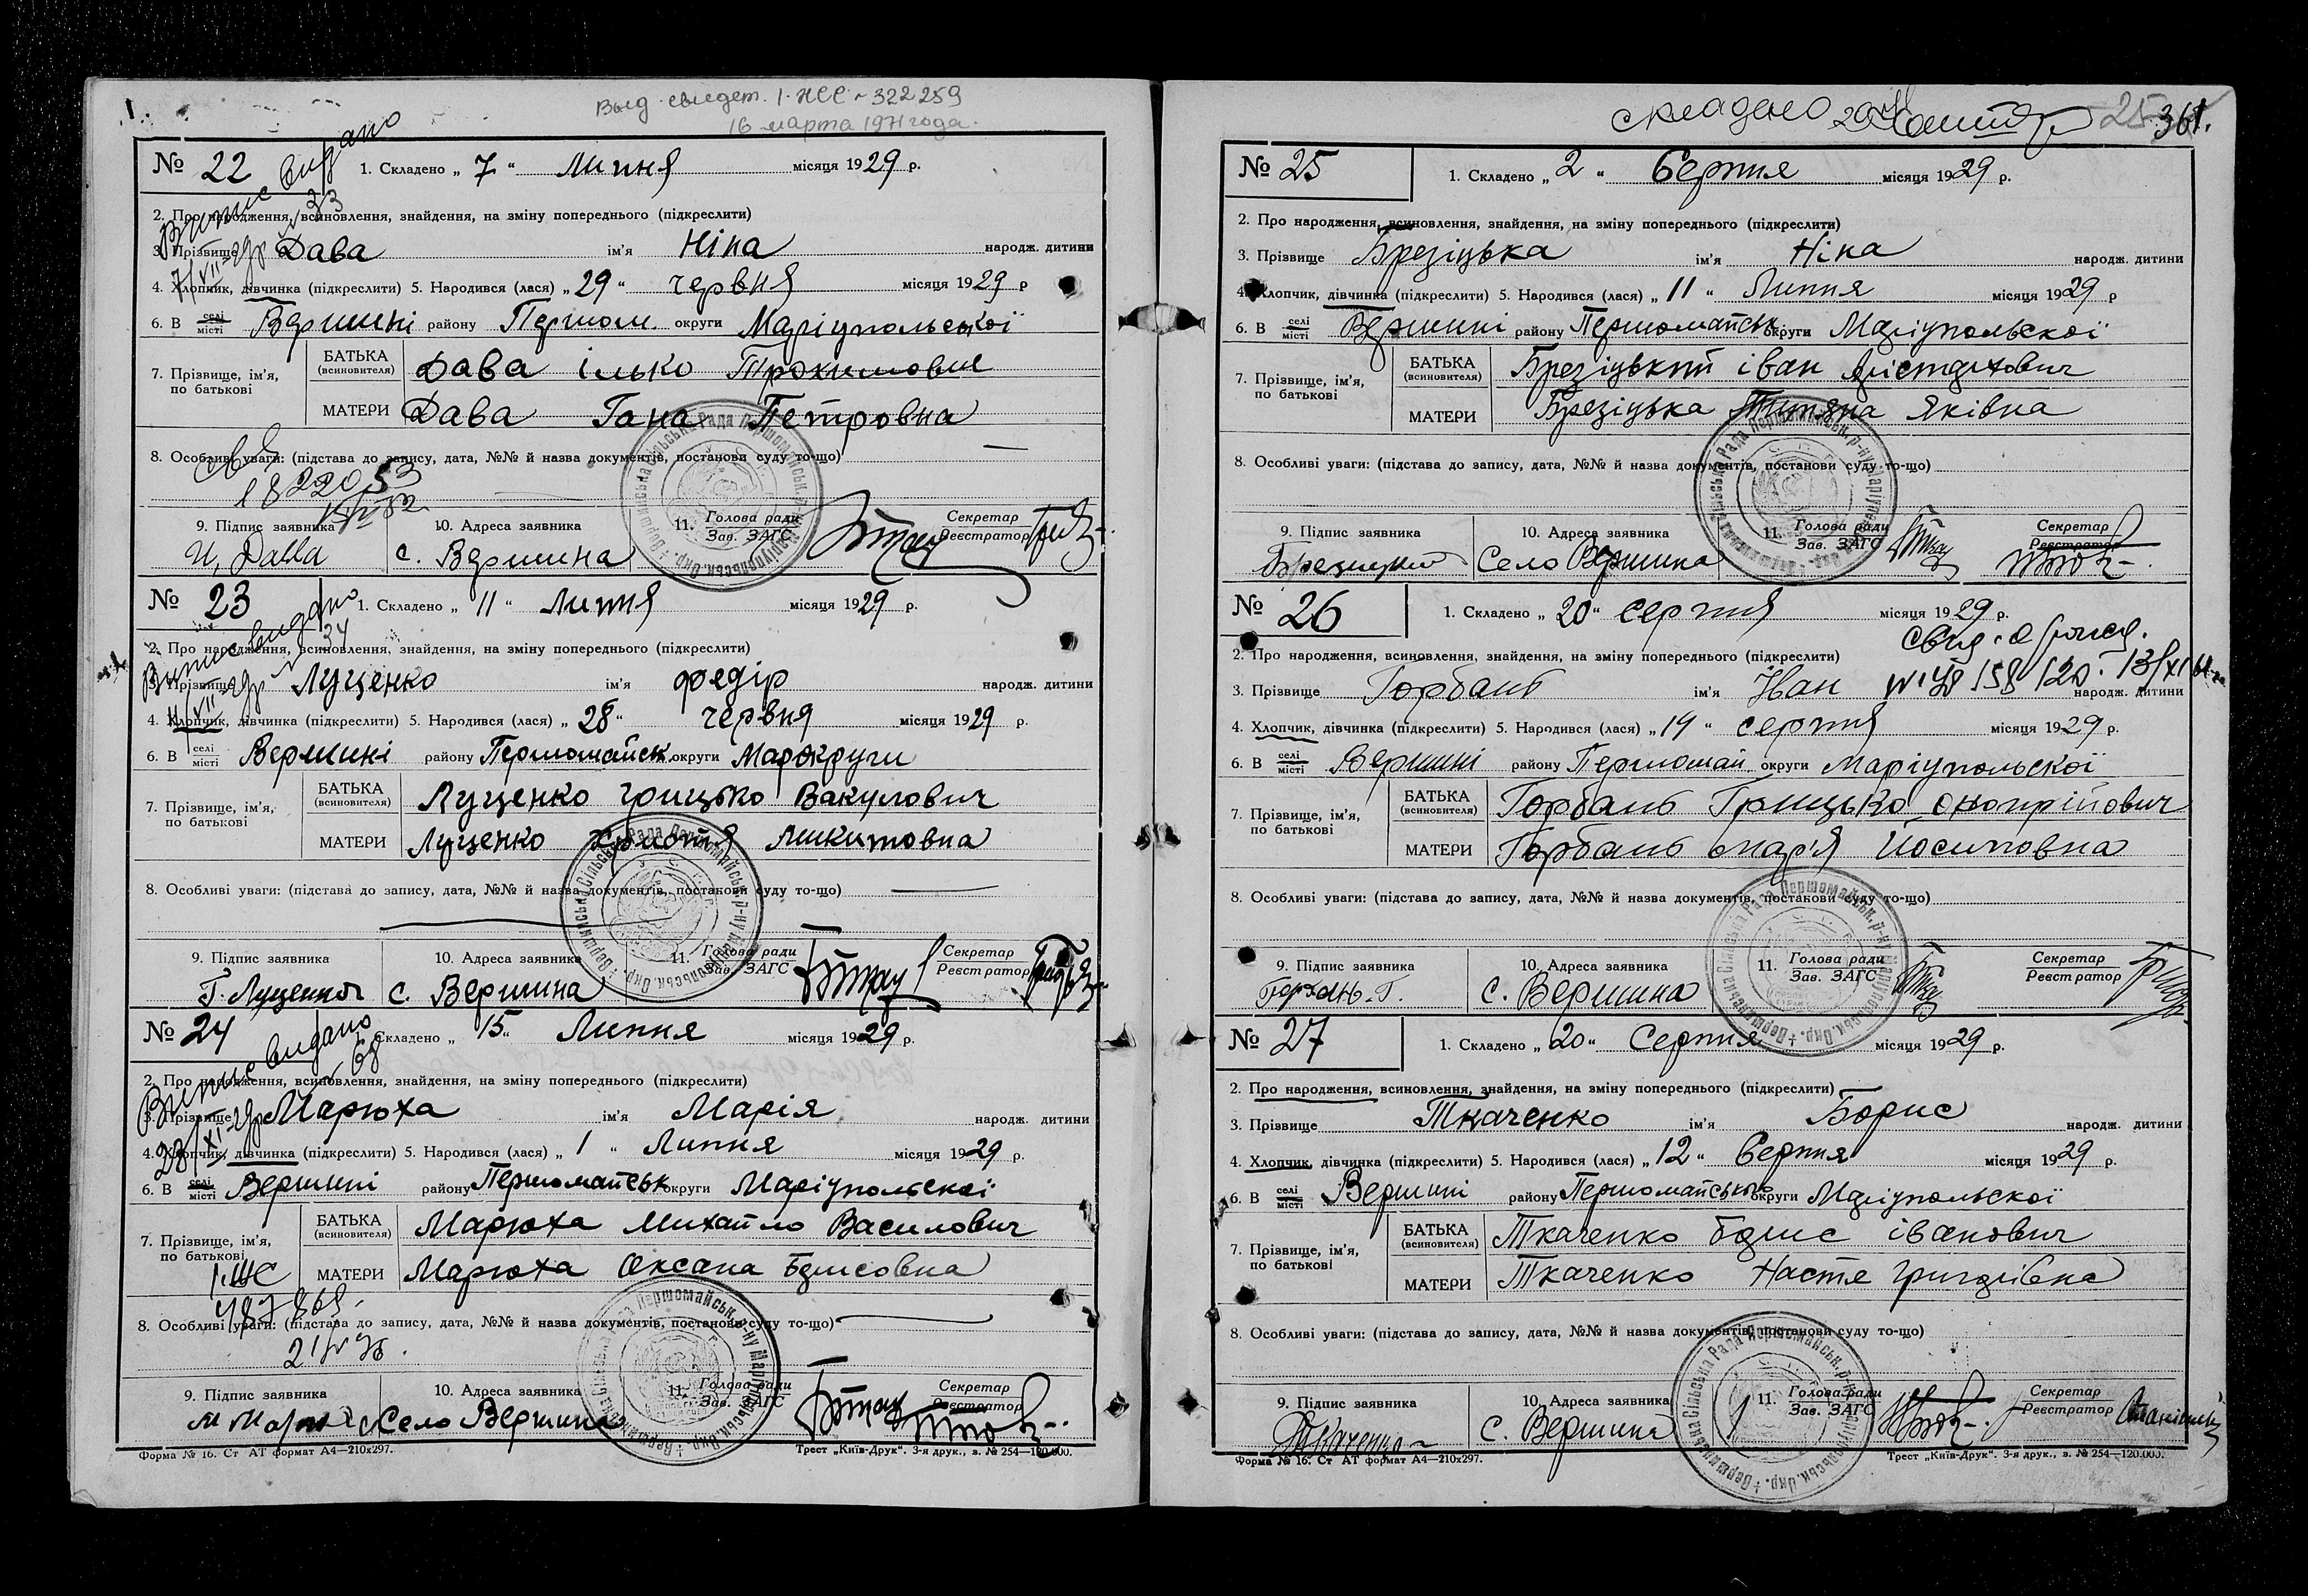 Выд. свидет. 1-ЖСС № 322259
16 марта 1971 года.
№ 22
1. Складено „ 7 “ Липня місяця 1929 р.
Витяг видано
№ 33
7/VII-29р
2. Про народження, всиновлення, знайдення, на зміну попереднього (підкреслити)
3. Прізвище Дава ім'я Ніна народж. дитини
4. Хлопчик, дівчинка (підкреслити) 5. Народився (лася) „ 29 “ червня місяця 1929 р
6. В селі місті Вершині району Першом. округи Маріупольської
7. Прізвище, ім'я, по батькові
БАТЬКА (всиновителя) Дава Ілько Трохимович
МАТЕРИ Дава Гана Петровна
8. Особливі уваги: (підстава до запису, дата, №№ й назва документів, постанови суду то-що)
9. Підпис заявника 10. Адреса заявника 11. Голова ради Зав. ЗАГС Секретар Реєстратор
И, Дава с. Вершина
№ 23
1. Складено „ 11 “ Липня місяця 1929 р.
Витяг видано
№ 34
11/VII-29р
2. Про народження, всиновлення, знайдення, на зміну попереднього (підкреслити)
3. Прізвище Луценко ім'я Федір народж. дитини
4. Хлопчик, дівчинка (підкреслити) 5. Народився (лася) „ 28 “ червня місяця 1929 р.
6. В селі місті Вершині району Першомайськ. округи Маріокруги
7. Прізвище, ім'я, по батькові
БАТЬКА (всиновителя) Луценко Грицько Вакулович
МАТЕРИ Луценко Христя Микитовна
8. Особливі уваги: (підстава до запису, дата, №№ й назва документів, постанови суду то-що)
9. Підпис заявника 10. Адреса заявника 11. Голова ради Зав. ЗАГС Секретар Реєстратор
Г. Луценко с. Вершина
№ 24
1. Складено „ 15 “ Липня місяця 1929 р.
Витяг видано
№ 68
28/XI-29р
2. Про народження, всиновлення, знайдення, на зміну попереднього (підкреслити)
3. Прізвище Марюха ім'я Марія народж. дитини
4. Хлопчик, дівчинка (підкреслити) 5. Народився (лася) „ 1 “ Липня місяця 1929 р.
6. В селі місті Вершині району Першомайськ округи Маріупольскої
7. Прізвище, ім'я, по батькові
БАТЬКА (всиновителя) Марюха Михайло Василович
МАТЕРИ Марюха Оксана Борисовна
8. Особливі уваги: (підстава до запису, дата, №№ й назва документів, постанови суду то-що)
9. Підпис заявника 10. Адреса заявника 11. Голова ради Зав. ЗАГС Секретар Реєстратор
Село Вершина
Форма № 16. Ст АТ формат А4—210х297. Трест „Київ-Друк“. 3-я друк., з. № 254—120.000.
складено 29
361.
№ 25
1. Складено „ 2 “ Серпня місяця 1929 р.
2. Про народження, всиновлення, знайдення, на зміну попереднього (підкреслити)
3. Прізвище Брезіцька ім'я Ніна народж. дитини
4. Хлопчик, дівчинка (підкреслити) 5. Народився (лася) „ 11 “ Липня місяця 1929 р
6. В селі місті Вершині району Першомайськ. округи Маріупольскої
7. Прізвище, ім'я, по батькові
БАТЬКА (всиновителя) Брезіцький Іван Арістархович
МАТЕРИ Брезіцька Титяна Яківна
8. Особливі уваги: (підстава до запису, дата, №№ й назва документів, постанови суду то-що)
9. Підпис заявника 10. Адреса заявника 11. Голова ради Зав. ЗАГС Секретар Реєстратор
Брезицкий Село Вершина
№ 26
1. Складено „ 20 “ серпня місяця 1929 р.
2. Про народження, всиновлення, знайдення, на зміну попереднього (підкреслити)
3. Прізвище Горбань ім'я Іван народж. дитини
4. Хлопчик, дівчинка (підкреслити) 5. Народився (лася) „ 19 “ серпня місяця 1929 р.
6. В селі місті Вершині району Першомай. округи Маріупольскої
7. Прізвище, ім'я, по батькові
БАТЬКА (всиновителя) Горбань Грицько Онопрійович
МАТЕРИ Горбань Мар'я Йосиповна
8. Особливі уваги: (підстава до запису, дата, №№ й назва документів, постанови суду то-що)
9. Підпис заявника 10. Адреса заявника 11. Голова ради Зав. ЗАГС Секретар Реєстратор
Горбань. Г. с. Вершина
№ 27
1. Складено „ 20 “ Серпня місяця 1929 р.
2. Про народження, всиновлення, знайдення, на зміну попереднього (підкреслити)
3. Прізвище Ткаченко ім'я Борис народж. дитини
4. Хлопчик, дівчинка (підкреслити) 5. Народився (лася) „ 12 “ Серпня місяця 1929 р.
6. В селі місті Вершині району Першомайського округи Маріупольскої
7. Прізвище, ім'я, по батькові
БАТЬКА (всиновителя) Ткаченко Борис Іванович
МАТЕРИ Ткаченко Настя Григорівна
8. Особливі уваги: (підстава до запису, дата, №№ й назва документів, постанови суду то-що)
9. Підпис заявника 10. Адреса заявника 11. Голова ради Зав. ЗАГС Секретар Реєстратор
Ткаченко с. Вершина
Форма № 16. Ст АТ формат А4—210х297. Трест „Київ-Друк“. 3-я друк., з. № 254—120.000.